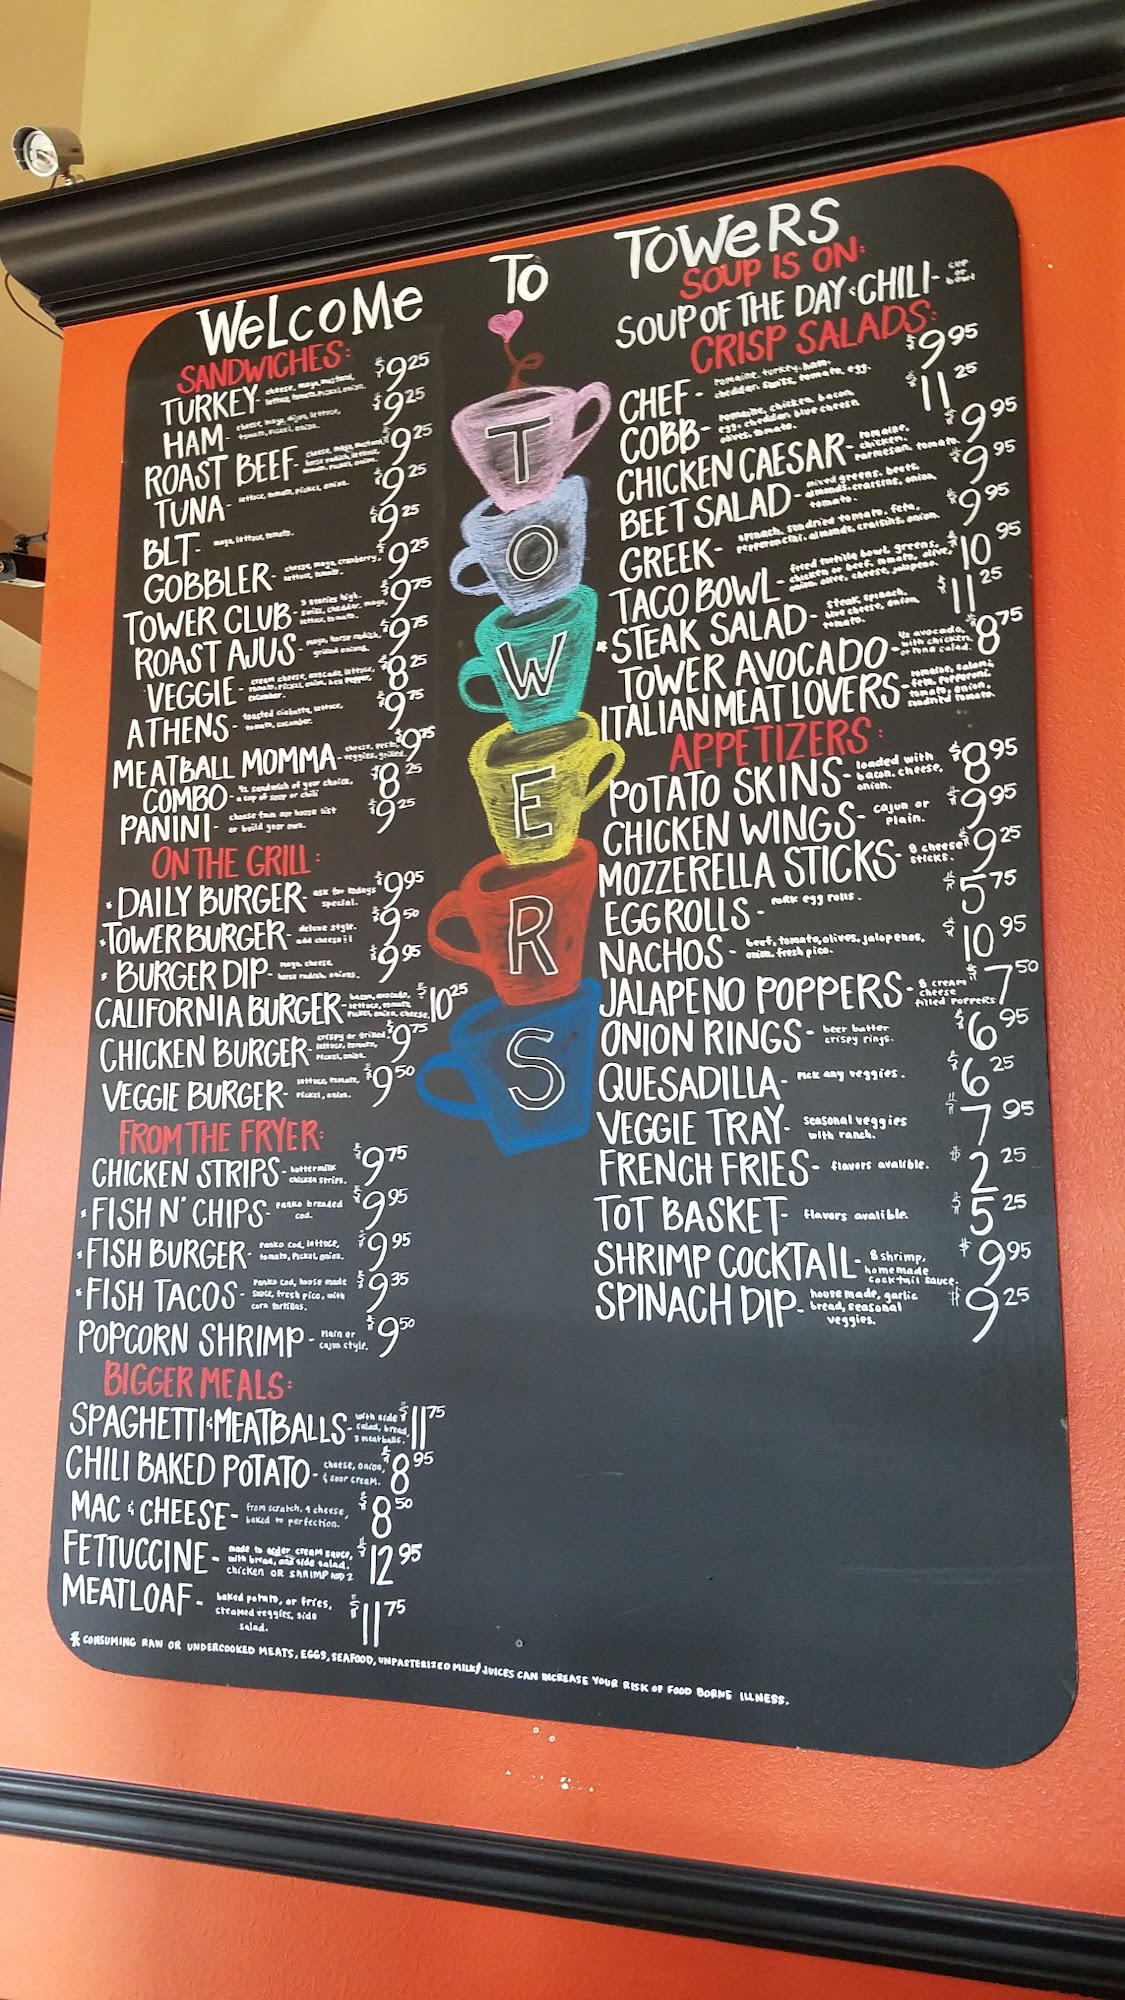 WeLcoMe To ToWeRS
SANDWICHES:
TURKEY- cheese, mayo, mustard, lettuce, tomato, pickel, onion. $9.25
HAM- cheese, mayo, dijon, lettuce, tomato, pickel, onion. $9.25
ROAST BEEF- cheese, mayo, mustard, horse radish, lettuce, tomato, pickel, onion. $9.25
TUNA- lettuce, tomato, pickel, onion. $9.25
BLT- mayo, lettuce, tomato. $9.25
GOBBLER- cheese, mayo, cranberry, lettuce, tomato. $9.25
TOWER CLUB- 3 stories high. swiss, cheddar, mayo, lettuce, tomato. $9.75
ROAST AJUS- mayo, horse radish, grilled onions. $9.75
VEGGIE- cream cheese, avocado, lettuce, tomato, pickel, onion, bell pepper, cucumber. $8.25
ATHENS- toasted ciabatta, lettuce, tomato, cucumber. $9.75
MEATBALL MOMMA- cheese, pesto, veggies, grilled $9.75
COMBO- ½ sandwich of your choice, a cup of soup or chili $8.25
PANINI- choose from our house list or build your own. $9.25
ON THE GRILL:
* DAILY BURGER- ask for todays special. $9.95
* TOWER BURGER- deluxe style. add cheese $1 $9.50
* BURGER DIP- mayo, cheese, horse radish, onions. $9.95
CALIFORNIA BURGER- bacon, avocado, lettuce, tomato, pickel, onion, cheese. $10.25
CHICKEN BURGER- crispy or grilled, lettuce, tomato, pickel, onion. $9.75
VEGGIE BURGER- lettuce, tomato, pickel, onion. $9.50
FROM THE FRYER:
CHICKEN STRIPS- buttermilk chicken strips. $9.75
* FISH N' CHIPS- Panko breaded cod. $9.95
* FISH BURGER- Panko cod, lettuce, tomato, pickel, onion. $9.95
* FISH TACOS- Panko cod, house made sauce, fresh pico, with corn tortillas. $9.35
POPCORN SHRIMP- plain or cajun style. $9.50
BIGGER MEALS:
SPAGHETTI & MEATBALLS- with side salad, bread, 3 meatballs. $11.75
CHILI BAKED POTATO- cheese, onion, & sour cream. $8.95
MAC & CHEESE- from scratch, 4 cheese, baked to perfection. $8.50
FETTUCCINE- made to order cream sauce, with bread, and side salad. chicken OR SHRIMP ADD 2 $12.95
MEATLOAF- baked potato, or fries, steamed veggies, side salad. $11.75
* CONSUMING RAW OR UNDERCOOKED MEATS, EGGS, SEAFOOD, UNPASTERIZED MILK/JUICES CAN INCREASE YOUR RISK OF FOOD BORNE ILLNESS.
T
O
W
E
R
S
SOUP IS ON:
SOUP OF THE DAY & CHILI- cup or bowl
CRISP SALADS:
CHEF- romaine, turkey, ham, cheddar, swiss, tomato, egg. $9.95
COBB- romaine, chicken, bacon, egg, cheddar, blue cheese, olives, tomato. $11.25
CHICKEN CAESAR- romaine, chicken, Parmesan, tomato. $9.95
BEET SALAD- mixed greens, beets, almonds, craisins, onion, tomato. $9.95
GREEK- spinach, sundried tomato, feta, pepperoncini, almonds, craisins, onion. $9.95
TACO BOWL- fried tortilla bowl, greens, chicken or beef, tomato, olive, onion, cheese, jalapeno. $10.95
* STEAK SALAD- steak, spinach, blue cheese, onion, tomato. $11.25
TOWER AVOCADO- ½ avocado, with chicken, or tuna salad. $8.75
ITALIAN MEAT LOVERS- romaine, salami, feta, pepperoni, tomato, onion, sundried tomato.
APPETIZERS:
POTATO SKINS- loaded with bacon, cheese, onion. $8.95
CHICKEN WINGS- cajun or plain. $9.95
MOZZERELLA STICKS- 8 cheese sticks. $9.25
EGGROLLS- Pork egg rolls. $5.75
NACHOS- beef, tomato, olives, jalopenos, onion, fresh pico. $10.95
JALAPENO POPPERS- 8 cream cheese filled Poppers $7.50
ONION RINGS- beer batter crispy rings. $6.95
QUESADILLA- Pick any veggies. $6.25
VEGGIE TRAY- seasonal veggies with ranch. $7.95
FRENCH FRIES- flavors avalible. $2.25
TOT BASKET- flavors avalible. $5.25
SHRIMP COCKTAIL- 8 shrimp, homemade cocktail sauce. $9.95
SPINACH DIP- house made, garlic bread, seasonal veggies. $9.25